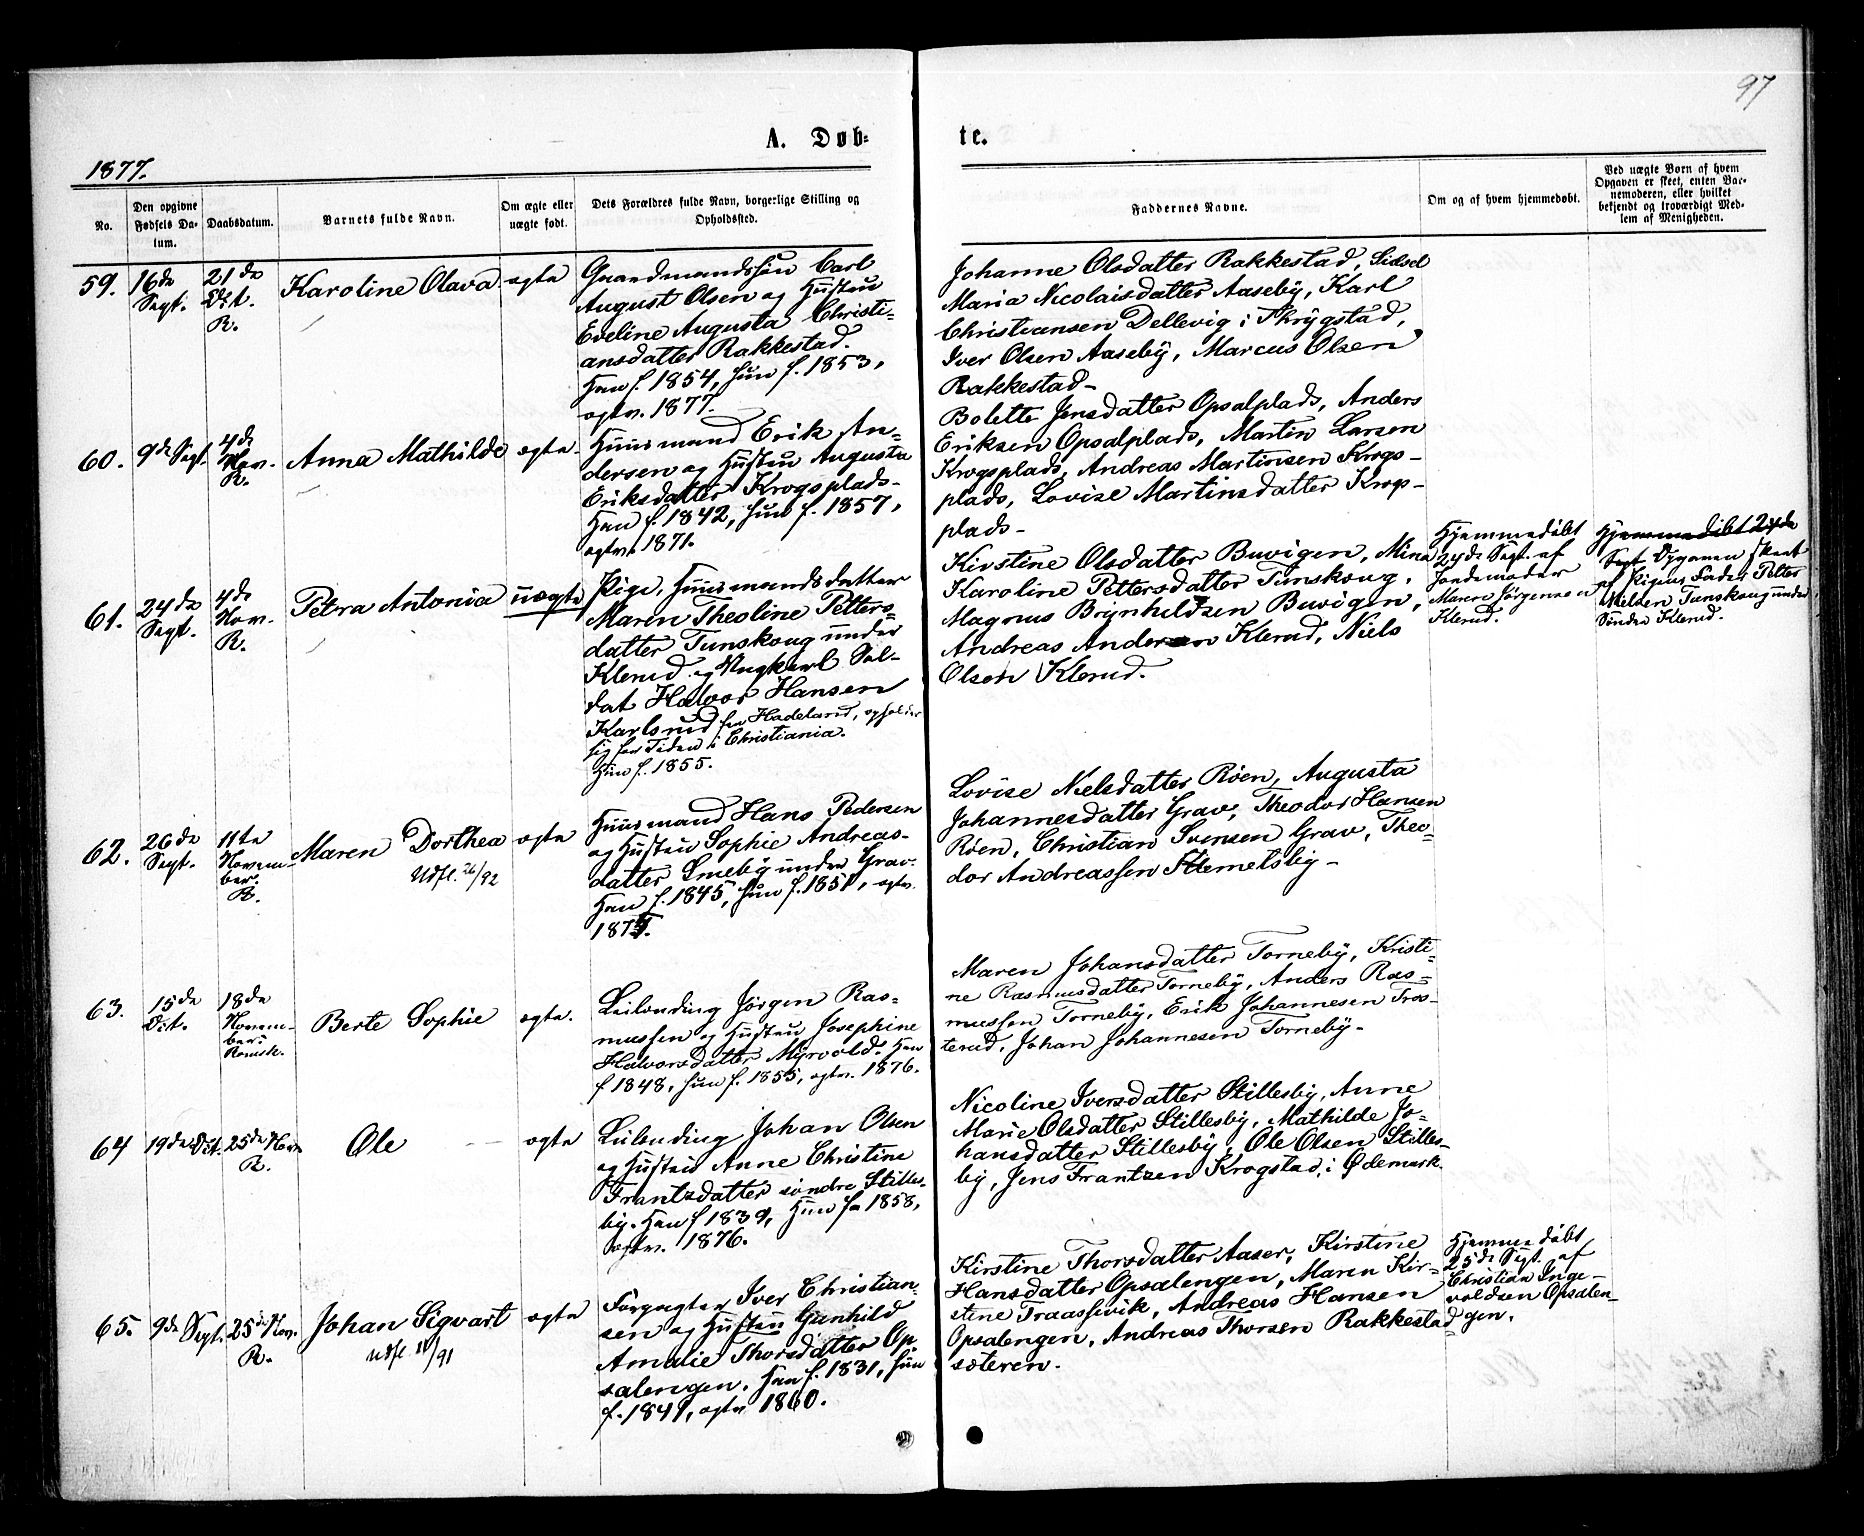 97
A. Døb-te.
1877.
No.
Den opgivne Fødsels Da-
tum.
Daabsdatum.
Barnets fulde Navn.
Om ægte eller
uægte født.
Dets Forældres fulde Navn, borgerlige Stilling og
Opholdssted.
Faddernes Navne.
Om og af hvem hjemmedøbt.
Ved uægte Børn af hvem
Opgaven er skeet, enten Bar-
nemoderen, eller hvilket
bekjendt og troværdigt Med-
lem af Menigheden.
59.
16de
Sept.
21de
Oct.
R.
Karoline Olava
ægte
Gaardmandssøn Carl
August Olsen og Hustru
Eveline Augusta Christi-
ansdatter Rakkestad.
Han f. 1854, hun f. 1853,
ægtv. 1877.
Johanne Olsdatter Rakkestad, Sidsel
Maria Nicolaisdatter Aaseby, Karl
Christiansen Dellevig i Skrygstad,
Iver Olsen Aaseby, Marcus Olsen
Rakkestad-
60.
9de Sept.
4de
Nov.
R.
Anna Mathilde
ægte.
Huusmand Erik An-
dersen og Hustru Augusta
Eriksdatter Krogsplads-
Han f. 1842, hun f. 1857,
ægtv. 1871.
Bolette Jensdatter Opsalplads, Anders
Eriksen Opsalplads, Martin Larsen
Krogsplads, Andreas Martinsen Krogs-
plads, Lovise Martinsdatter Krogs-
plads-
61.
24de
Sept.
4de
Nov.
R.
Petra Antonia
uægte
Pige, Huusmandsdatter
Maren Theoline Petters-
datter Tunskoug under
Klerud og Ungkarl Sol-
dat Halvor Hansen
Karlsrud fra Hadeland, opholder
sig for Tiden i Christiania.
Hun f. 1855.
Kirstine Olsdatter Buvigen, Mina
Karoline Pettersdatter Tunskoug,
Magnus Brynhildsen Buvigen,
Andreas Andersen Klerud, Niels
Olsen Klerud.
Hjemmedøbt
24de Sept. af
Jordemoder
Maren Jørgensen
Klerud.
Hjemmedøbt 24de
Sept. Opgaven skeet
af Pigens Fader Petter
Nielsen Tunskoug under
Søndre Klerud.
62.
26de
Sept.
11te
Novem-
ber.
R.
Maren Dorthea
Udfl. 26/92
ægte
Huusmand Hans Pedersen
og Hustru Sophie Andreas-
datter Smeby under Grav.
Han f. 1845, hun f. 1851, ægtv.
Lovise Nielsdatter Røen, Augusta
Johannesdatter Grav, Theodor Hansen
Røen, Christian Svensen Grav, Theo-
dor Andreassen Klemetsby-
63.
15de
Oct.
18de
Novem-
ber.
Romsk.
Berte Sophie
ægte.
Leilending Jørgen Ras-
mussen og Hustru Josephine
Halvorsdatter Myrvold. Han
f 1848, hun f. 1855, ægtv. 1876.
Maren Johansdatter Torneby, Kristi-
ne Rasmusdatter Torneby, Anders Ras-
mussen Torneby, Erik Johannesen Tros-
terud, Johan Johannesen Torneby-
64
19de Oct.
25de Nov.
R.
Ole
ægte
Leilending Johan Olsen
og Hustru Anne Christine
Frantzdatter søndre Stilles-
by. Han f 1839, Hun f. 1858,
ægtv. 1876.
Nicoline Iversdatter Stillesby, Anne
Marie Olsdatter Stillesby, Mathilde Jo-
hansdatter Stillesby, Ole Olsen Stilles-
by, Jens Frantzen Krogstad i Ødemark.
65.
9de Sept.
25de Nov.
R.
Johan Sigvart
Udfl. 11/91
ægte
Forpagter Iver Christian-
sen og Hustru Gunhild
Amalie Thorsdatter Op-
salengen. Han f. 1831, hun
f. 1841, ægtv 1860.
Kirstine Thorsdatter Aaser, Kirstine
Hansdatter Opsalengen, Maren Kir-
stine Traassevik, Andreas Hansen
Opsalengen, Andreas Thorsen Rakkestad
sæteren.
Hjemmedøbt
25de Sept. af
Christian Inge-
voldsen Opsalen-
gen.